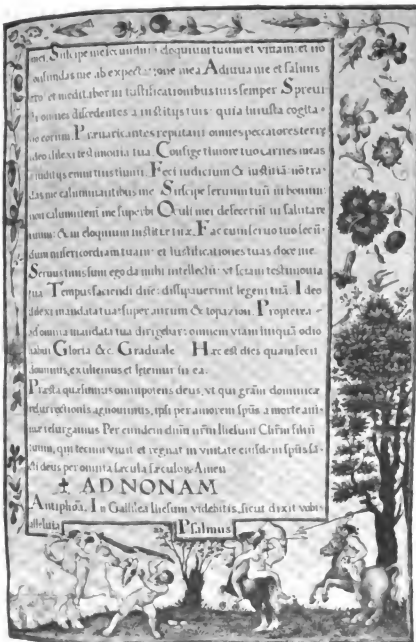 mei. Suscipe me secundũ eloquium tuum et viuam: et nõ
confundas me ab expectatione mea Adiuua me et saluus
ero: et meditabor in iustificationibus tuis semper Spreui
sti omnes discedentes a iustitijs tuis: quia iniusta cogita-
tio eorum. Præuaricantes reputaui omnes peccatores terrę
ideo dilexi testimonia tua. Confige timore tuo carnes meas
a iuditijs enim tuis timui. Feci iudicium & iustitiã: nõ tra-
das me calumniantibus me. Suscipe seruum tuũ in bonum:
non calumnient me superbi Oculi mei defecerũt in salutare
tuum: & in eloquium iustitię tuæ. Fac cum seruo tuo secũ-
dum misericordiam tuam: et iustificationes tuas doce me.
Seruus tuus sum ego da mihi intellectũ: vt sciam testimonia
tua Tempus faciendi dñe: dissipauerunt legem tuã. Ideo
dilexi mandata tua: super aurum & topazion. Propterea
ad omnia mandata tua dirigebar: omnem viam iniquã odio
habui Gloria &c. Graduale Hæc est dies quam fecit
dominus, exultemus et lętemur in ea.
Præsta quæsumus omnipotens deus, vt qui grãm dominicæ
resurrectionis agnouimus, ipsi per amorem spũs a morte ani-
mæ resurgamus Per eundem dñm nr̃m Ihesum Chr̃m filiũ
tuum, qui tecum viuit et regnat in vnitate eiusdem spũs sã-
cti deus per omnia sæcula sæculoꝝ Amen
✝ AD NONAM
Antiphõa. In Gallilea Ihesum videbitis, sicut dixit vobis
alleluia Psalmus